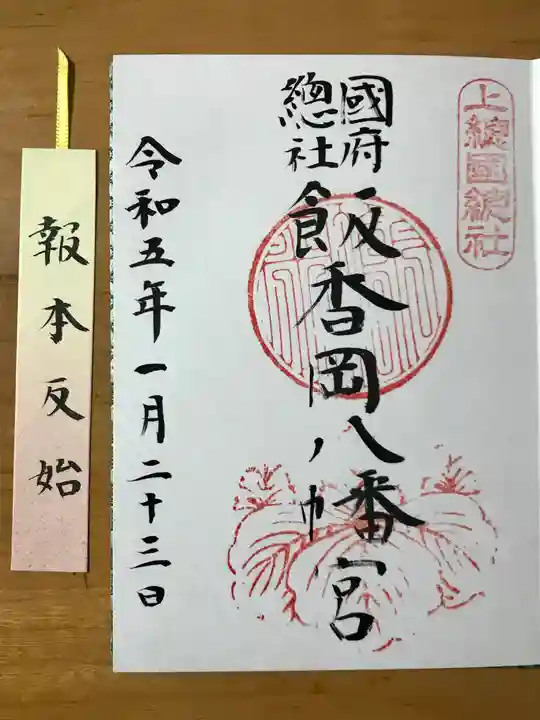 上總國総社
國府
總社
飯香岡八幡宮
令和五年一月二十三日
報本反始